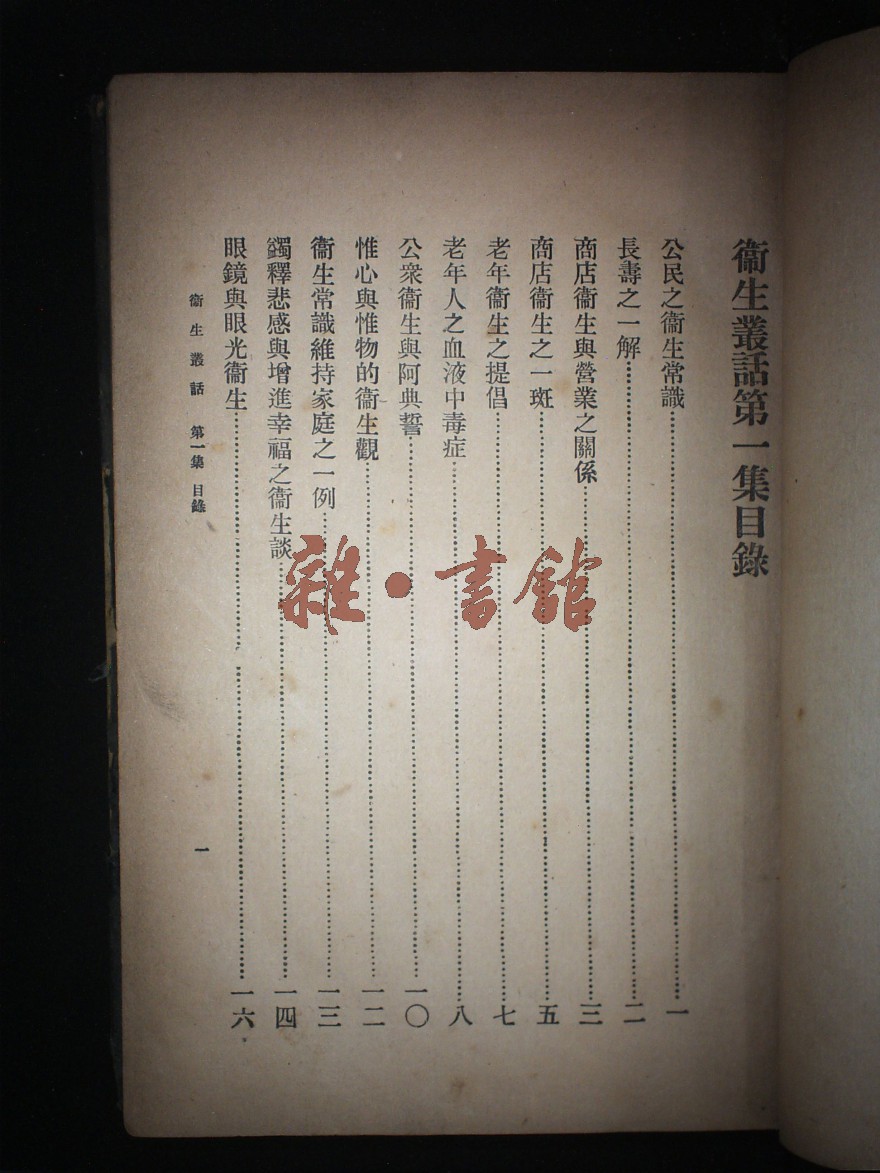 衞生叢話第一集目錄
公民之衞生常識……一
長壽之一解……二
商店衞生與營業之關係……三
商店衞生之一斑……五
老年衞生之提倡……七
老年人之血液中毒症……八
公衆衞生與阿典誓……一〇
惟心與惟物的衞生觀……一二
衞生常識維持家庭之一例……一三
蠲釋悲感與增進幸福之衞生談……一四
眼鏡與眼光衞生……一六
衞生叢話 第一集 目錄 一
雜·書館